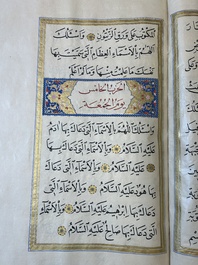 المكتوب على ورق الزيتون واسئلك
اللهم بالاسماء العظام التي سميت بها
نفسك ما علمت منها وما لم اعلم
الحزب الخامس
يوم الجمعة
واسئلك اللهم بالاسماء التي دعاك بها ادم
عليه السلام وبالاسماء التي دعاك بها
نوح عليه السلام وبالاسماء التي دعاك
بها هود عليه السلام وبالاسماء التي
دعاك بها ابرهيم عليه السلام وبالاسماء
التي دعاك بها صالح عليه السلام